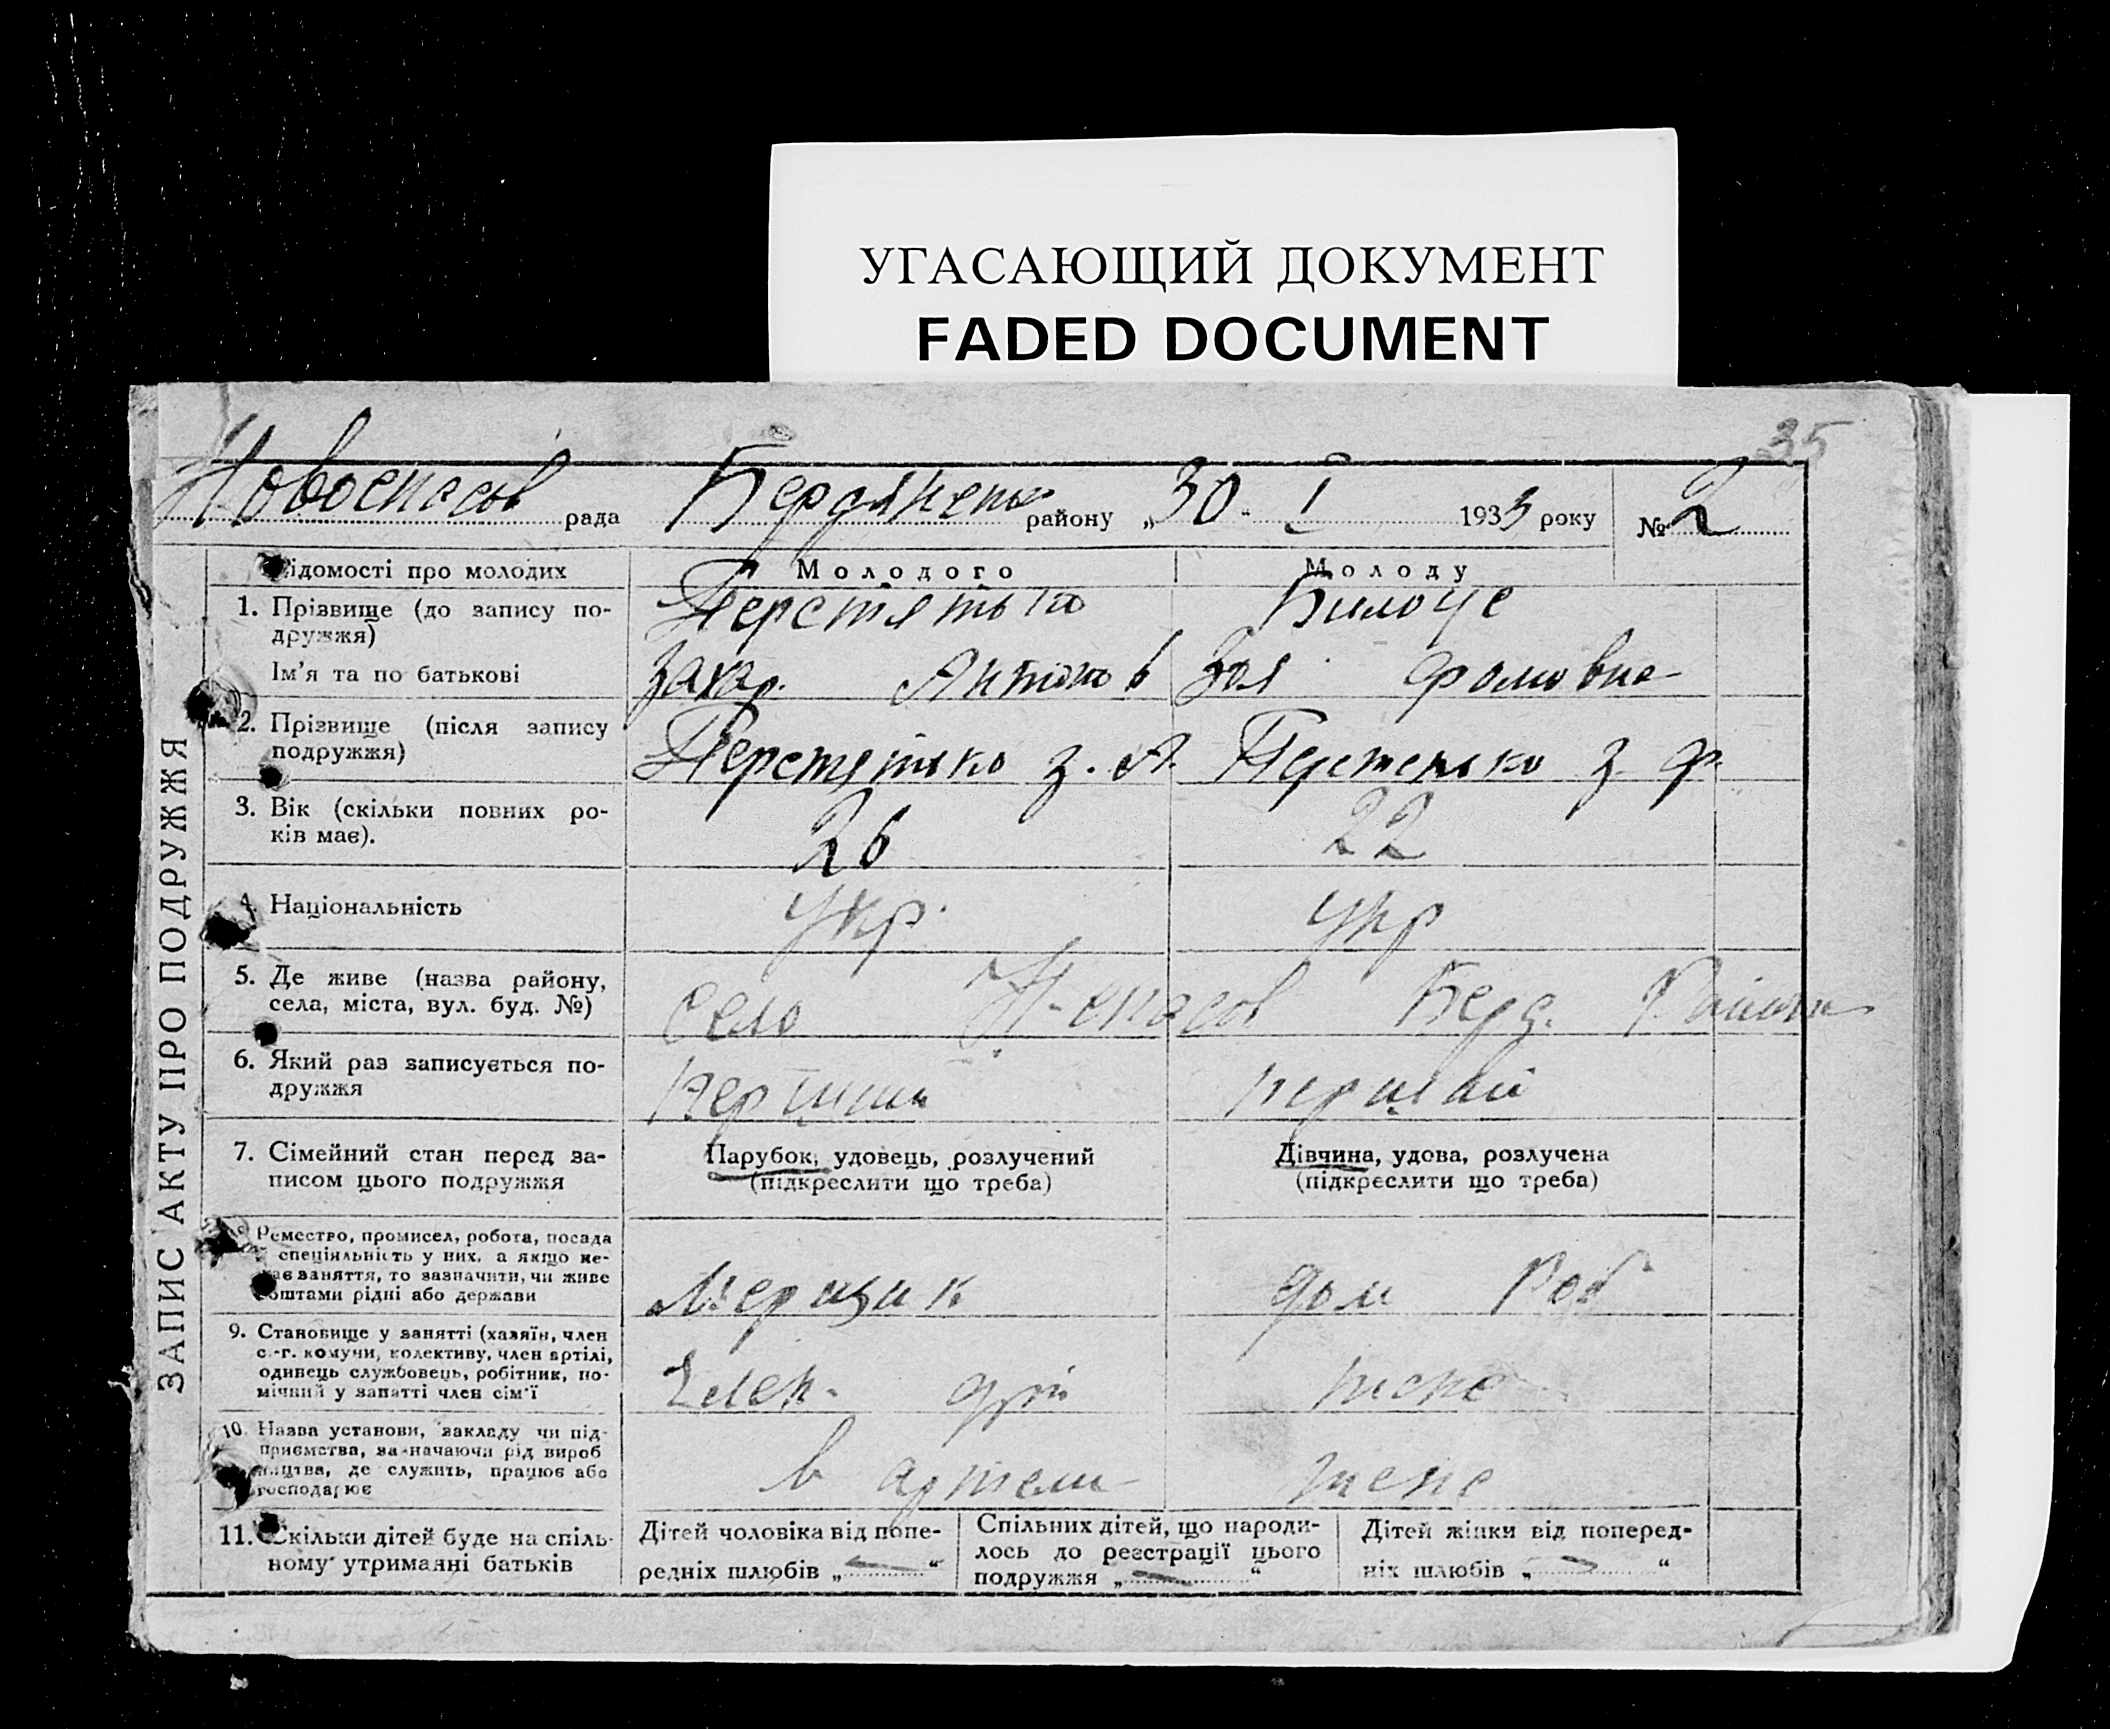 УГАСАЮЩИЙ ДОКУМЕНТ
FADED DOCUMENT
35
Новоспасов рада Бердянськ району „30" I 1933 року № 2
ЗАПИС АКТУ ПРО ПОДРУЖЖЯ
Відомості про молодих Молодого Молоду
1. Прізвище (до запису по-
дружжя) Перетятько Билоус
Ім'я та по батькові Захар. Антонов Зоя Фомовна
2. Прізвище (після запису
подружжя) Перетятько З. А. Перетятько З. Ф.
3. Вік (скільки повних ро-
ків має). 26 22
4. Національність Укр. Укр
5. Де живе (назва району,
села, міста, вул. буд. №) село Н-спасов Берд. Района
6. Який раз записується по-
дружжя первый первый
7. Сімейний стан перед за-
писом цього подружжя
Парубок, удовець, розлучений
(підкреслити що треба)
Дівчина, удова, розлучена
(підкреслити що треба)
8. Ремество, промисел, робота, посада
й спеціяльність у них, а якщо не-
має заняття, то зазначити, чи живе
коштами рідні або держави
дом Роб
9. Становище у занятті (хазяїн, член
с.-г. комуни, колективу, член артілі,
одинець службовець, робітник, по-
мічний у занятті член сім'ї
член.
10. Назва установи, закладу чи під-
приємства, зазначаючи рід вироб
ництва, де служить, працює або
господарює
в артели
11. Скільки дітей буде на спіль-
ному утриманні батьків
Дітей чоловіка від попе-
редніх шлюбів „ — “
Спільних дітей, що народи-
лось до реєстрації цього
подружжя „ — “
Дітей жінки від поперед-
ніх шлюбів „ — “